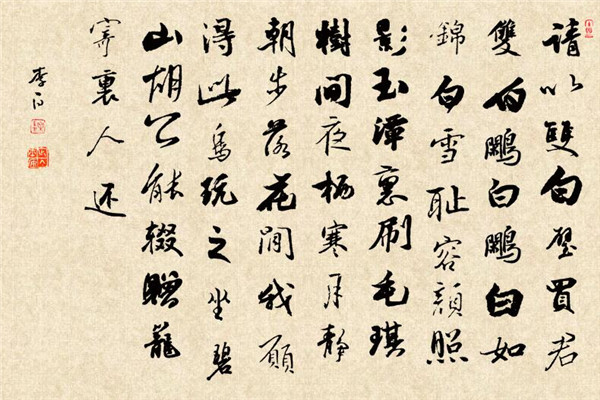 請以雙白璧買君
雙白鷴白鷴白如
錦白雪耻容顔照
影玉潭裏刷毛琪
樹間夜栖寒月静
朝步落花間我願
得此鳥玩之坐碧
山胡公能輟贈籠
寄裏人还
李白